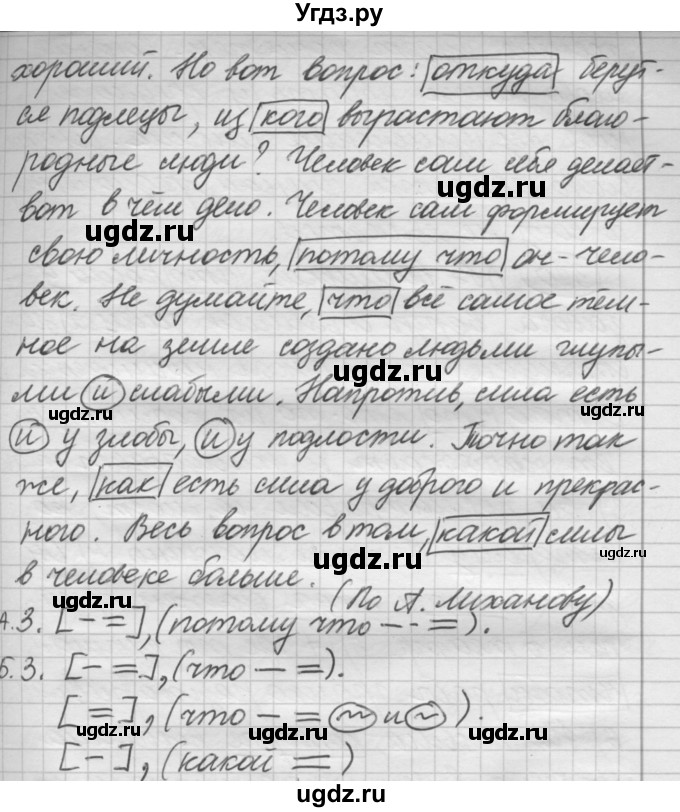 Угдз.ру
хороший. Но вот вопрос: откуда берут-
ся подлецы, из кого вырастают благо-
родные люди? Человек сам себя делает-
ugdz.ru
вот в чём дело. Человек сам формирует
ugdz.ru
ugdz.ru
свою личность, потому что он - чело-
век. Не думайте, что всё самое тём-
ugdz.ru
ное на земле создано людьми глупы-
ugdz.ru
ми и слабыми. Напротив, сила есть
ugdz.ru
ugdz.ru
и у злобы, и у подлости. Точно так
же, как есть сила у доброго и прекрас-
ugdz.ru
ного. Весь вопрос в том, какой силы
ugdz.ru
ugdz.ru
в человеке больше.
(По А. Лиханову)
ugdz.ru
А.3. [- =], (потому что - - =).
Б.3. [- =], (что - =).
ugdz.ru
[=], (что - = ~ и ~).
ugdz.ru
[-], (какой =)
ugdz.ru
ugdz.ru